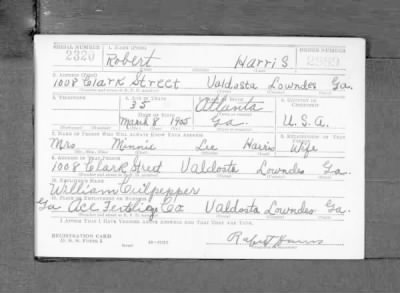 SERIAL NUMBER 1. NAME (Print) ORDER NUMBER
2320 Robert Harris
2. ADDRESS (Print)
1008 Clark Street Valdosta Lowndes Ga.
3. TELEPHONE 4. AGE IN YEARS 5. PLACE OF BIRTH 6. COUNTRY OF CITIZENSHIP
35 Atlanta
DATE OF BIRTH
March 8 1905 Ga. U.S.A.
7. NAME OF PERSON WHO WILL ALWAYS KNOW YOUR ADDRESS 8. RELATIONSHIP OF THAT PERSON
Mrs Minnie Lee Harris Wife
9. ADDRESS OF THAT PERSON
1008 Clark Street Valdosta Lowndes Ga.
10. EMPLOYER'S NAME
William Culpepper
11. PLACE OF EMPLOYMENT OR BUSINESS
Ga Ace Fertilizer Co Valdosta Lowndes Ga.
I AFFIRM THAT I HAVE VERIFIED ABOVE ANSWERS AND THAT THEY ARE TRUE.
REGISTRATION CARD
D. S. S. Form 1
Robert Harris